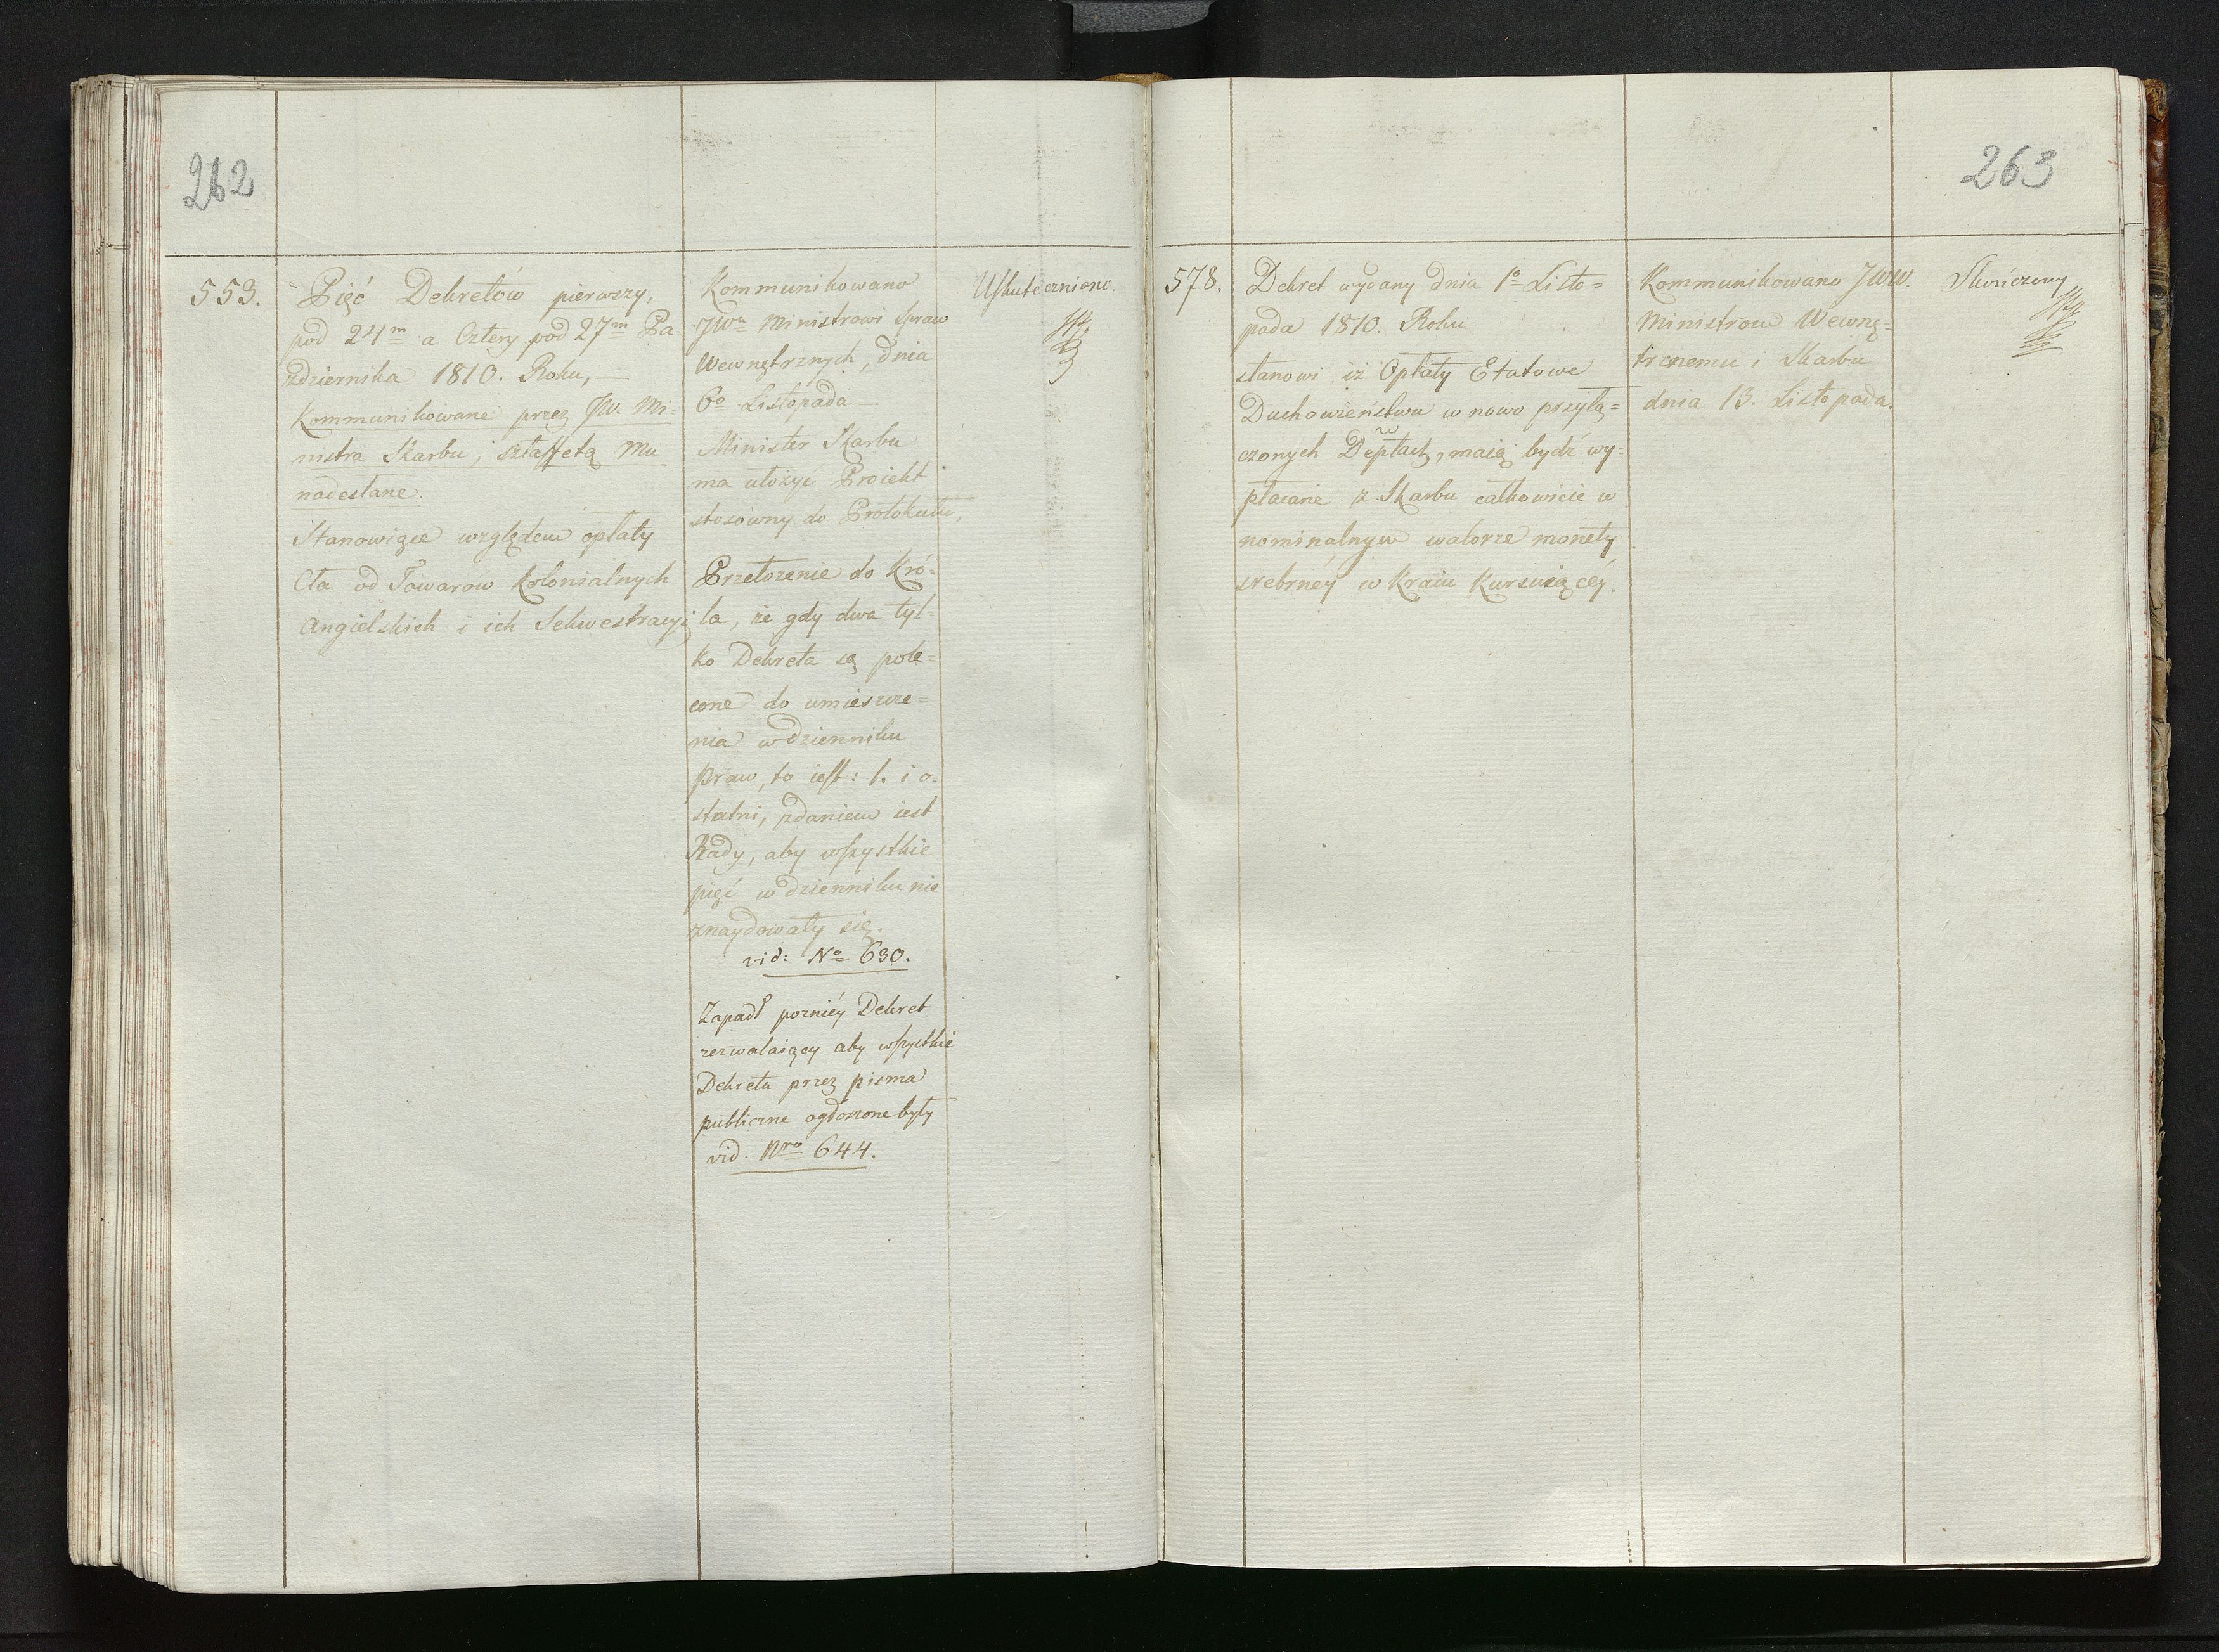 262
553.
Pięć Dekretów pierwszy,
pod 24m a Cztery pod 27m Pa
zdziernika 1810. Roku, —
Kommunikowane przez JW. Mi-
nistra Skarbu, sztaffetą Mu
nadesłane.
Stanowiące względem opłaty
Cła od Towarów Kolonialnych
Angielskich i ich Sekwestracyi
Kommunikowano
JWu Ministrowi Spraw
Wewnętrznych, dnia
6o Listopada —
Minister Skarbu
ma ułożyć Proiekt
stosowny do Protokułu,
Przełożenie do Kró-
la, że gdy dwa tyl-
ko Dekreta są pole=
cone do umieszcze=
nia w dzienniku
Praw, to iest: 1. i o-
statni, zdaniem iest
Rady, aby wszystkie
pięć w dzienniku nie
znaydowały się.
vid: No 630.
Zapadł pozniéy Dekret
zezwalaiący aby wszystkie
Dekreta przez pisma
publiczne ogłoszone były
vid. Nro 644.
Uskutecznione.
263
578.
Dekret wydany dnia 1o Listo=
pada 1810. Roku
stanowi iż Opłaty Etatowe
Duchowieństwu w nowo przyłą=
czonych Deptach, maią bydź wy=
płacane z Skarbu całkowicie w
nominalnym walorze monety
srebrnéy w Kraiu Kursuiącéy.
Kommunikowano JWW.
Ministrom Wewnę=
trznemu i Skarbu
dnia 13. Listopada.
Skończony